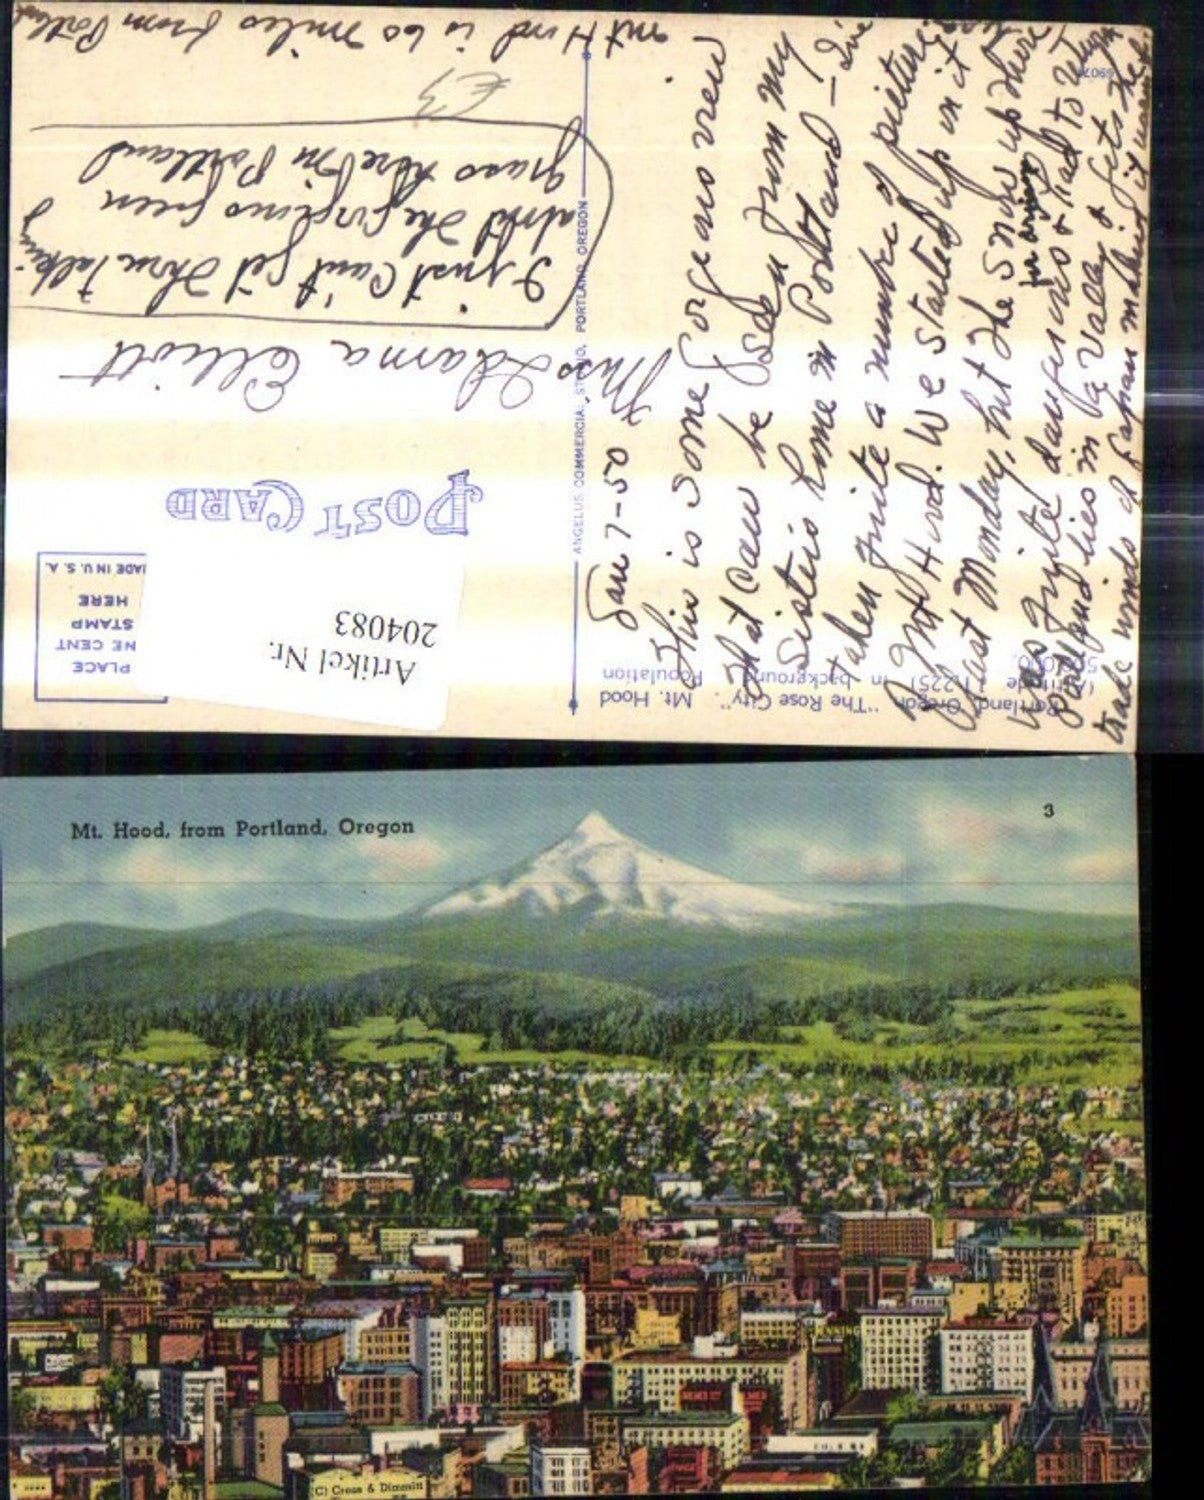 mt Hood is 60 miles from Portla
£3
I just can't get thru talking
about the gorgeous green
grass here in Portland
Miss Idama Elliott
POST CARD
PLACE
NE CENT
STAMP
HERE
MADE IN U. S. A.
Artikel Nr.
204083
ANGELUS COMMERCIAL STUDIO, PORTLAND, OREGON
Portland, Oregon, "The Rose City". Mt. Hood
(Altitude 11,225) in background. Population
500,000.
Jan 7-50
This is some gorgeous view
that can be seen from my
Sister's home in Portland — I've
taken quite a number of pictures
of Mt Hood. We started up in it
last Monday, but the snow up there
was quite dangerous for driving & had to return
Portland lies in a valley & gets the
trade winds of Japan makes it warm
Mt. Hood, from Portland, Oregon
3
(C) Cross & Dimmitt